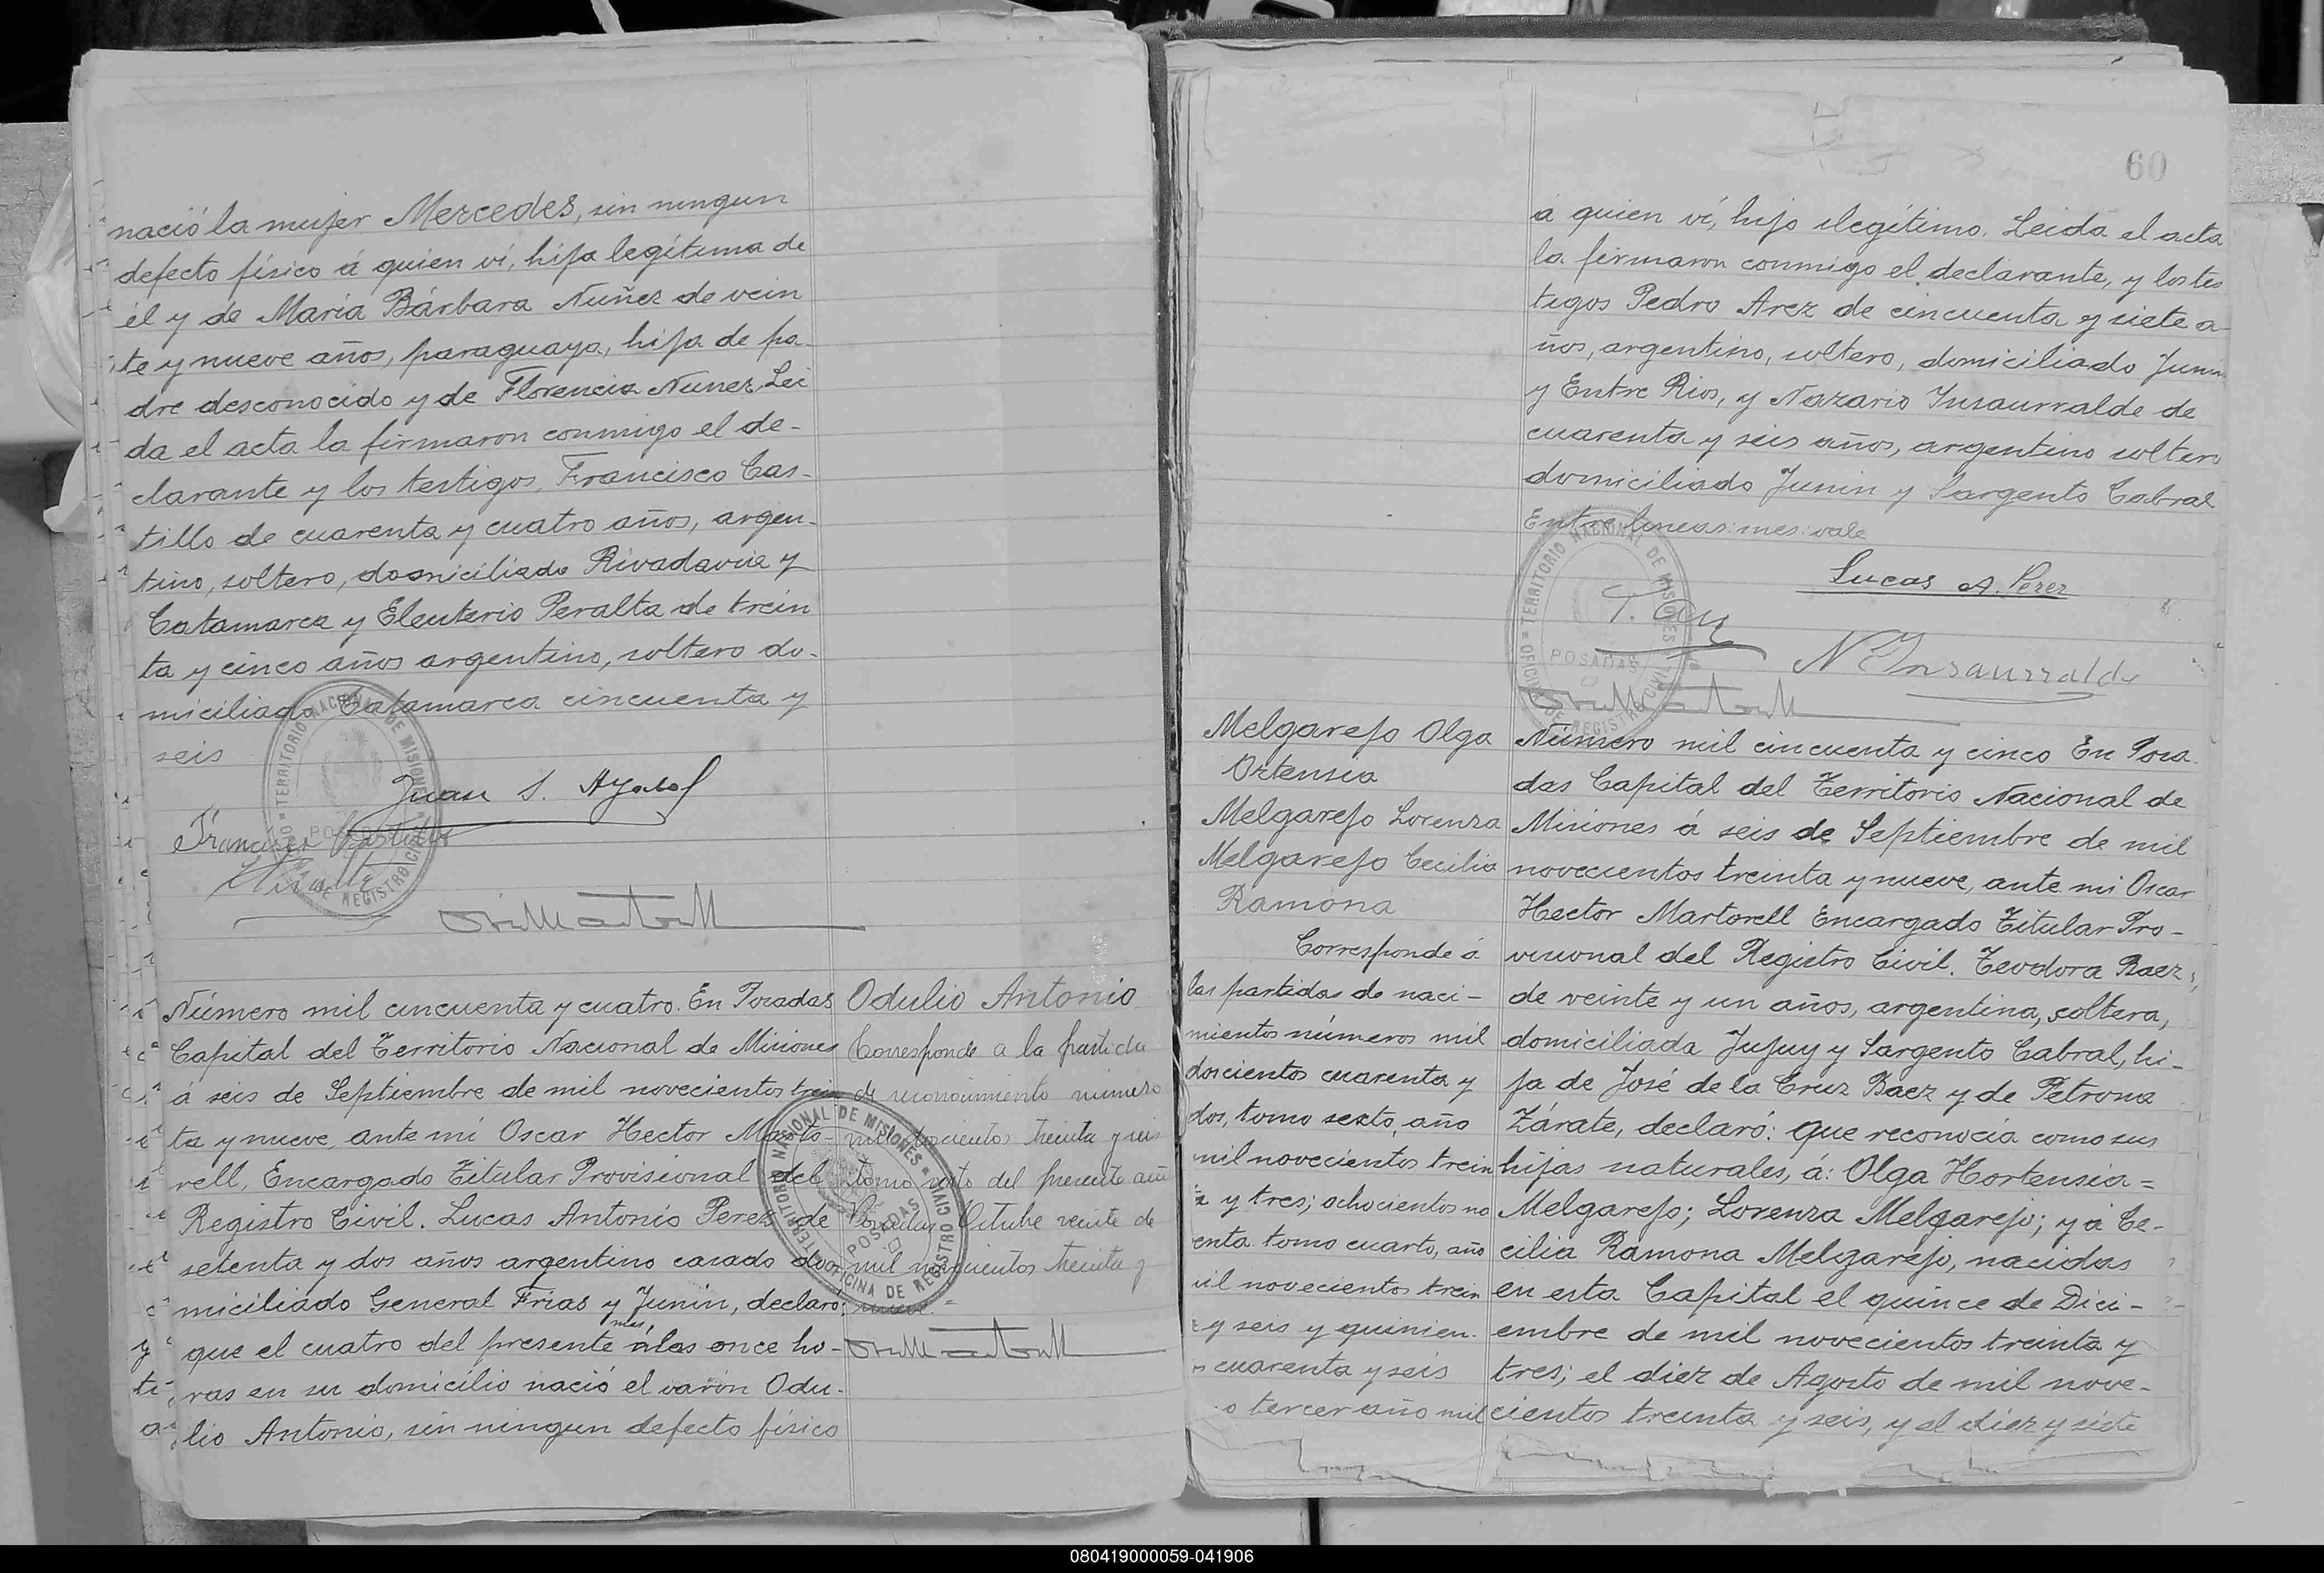 nació la mujer Mercedes, sin ningun
defecto físico á quien ví, hija legítima de
él y de María Bárbara Nuñez de vein
te y nueve años, paraguaya, hija de pa-
dre desconocido y de Florencia Nunez, Lei
da el acta la firmaron conmigo el de-
clarante y los testigos, Francisco Cas-
tillo de cuarenta y cuatro años, argen-
tino, soltero, domiciliado Rivadavia y
Catamarca y Eleuterio Peralta de trein
ta y cinco años argentino, soltero do-
miciliado Catamarca cincuenta y
seis
Juan S. Ayala
Francisco Castillo
Número mil cincuenta y cuatro. En Posadas
Capital del Territorio Nacional de Misiones
á seis de Septiembre de mil novecientos trein
ta y nueve, ante mí Oscar Hector Marto-
rell, Encargado Titular Provisional del
Registro Civil. Lucas Antonio Perez de
setenta y dos años argentino casado do-
miciliado General Frias y Junin, declaró:
mes,
que el cuatro del presente á las once ho-
ras en su domicilio nació el varón Odu-
lio Antonio, sin ningun defecto físico
Odulio Antonio
Corresponde a la partida
de reconocimiento número
mil doscientos treinta y seis
tomo sexto del presente año
Posadas Octubre veinte de
mil novecientos treinta y
nueve.=
TERRITORIO NACIONAL DE MISIONES = OFICINA DE REGISTRO CIVIL =
POSADAS
60
á quien ví, hijo ilegítimo. Leida el acta
la firmaron conmigo el declarante, y los tes
tigos Pedro Arez de cincuenta y siete a-
ños, argentino, soltero, domiciliado Junin
y Entre Rios, y Nazario Insaurralde de
cuarenta y seis años, argentino soltero
domiciliado Junin y Sargento Cabral
Entre lineas: mes: vale
Lucas A. Perez
N Insaurralde
TERRITORIO NACIONAL DE MISIONES = OFICINA DE REGISTRO CIVIL =
POSADAS
Melgarejo Olga
Ortensia
Melgarejo Lorenza
Melgarejo Cecilia
Ramona
Corresponde á
las partidas de naci-
mientos números mil
doscientos cuarenta y
dos, tomo sexto, año
mil novecientos trein
y tres; ochocientos no
enta tomo cuarto, año
mil novecientos trein
y seis y quinien.
cuarenta y seis
o tercer año mil
Número mil cincuenta y cinco En Posa-
das Capital del Territorio Nacional de
Misiones á seis de Septiembre de mil
novecientos treinta y nueve, ante mi Oscar
Hector Martorell Encargado Titular Pro-
visional del Registro Civil. Teodora Baez,
de veinte y un años, argentina, soltera,
domiciliada Jujuy y Sargento Cabral, hi-
ja de José de la Cruz Baez y de Petrona
Zárate, declaró: que reconocia como sus
hijas naturales, á: Olga Hortensia=
Melgarejo; Lorenza Melgarejo; y á Ce-
cilia Ramona Melgarejo, nacidas
en esta Capital el quince de Dici-
embre de mil novecientos treinta y
tres; el diez de Agosto de mil nove-
cientos treinta y seis, y el diez y siete
080419000059-041906